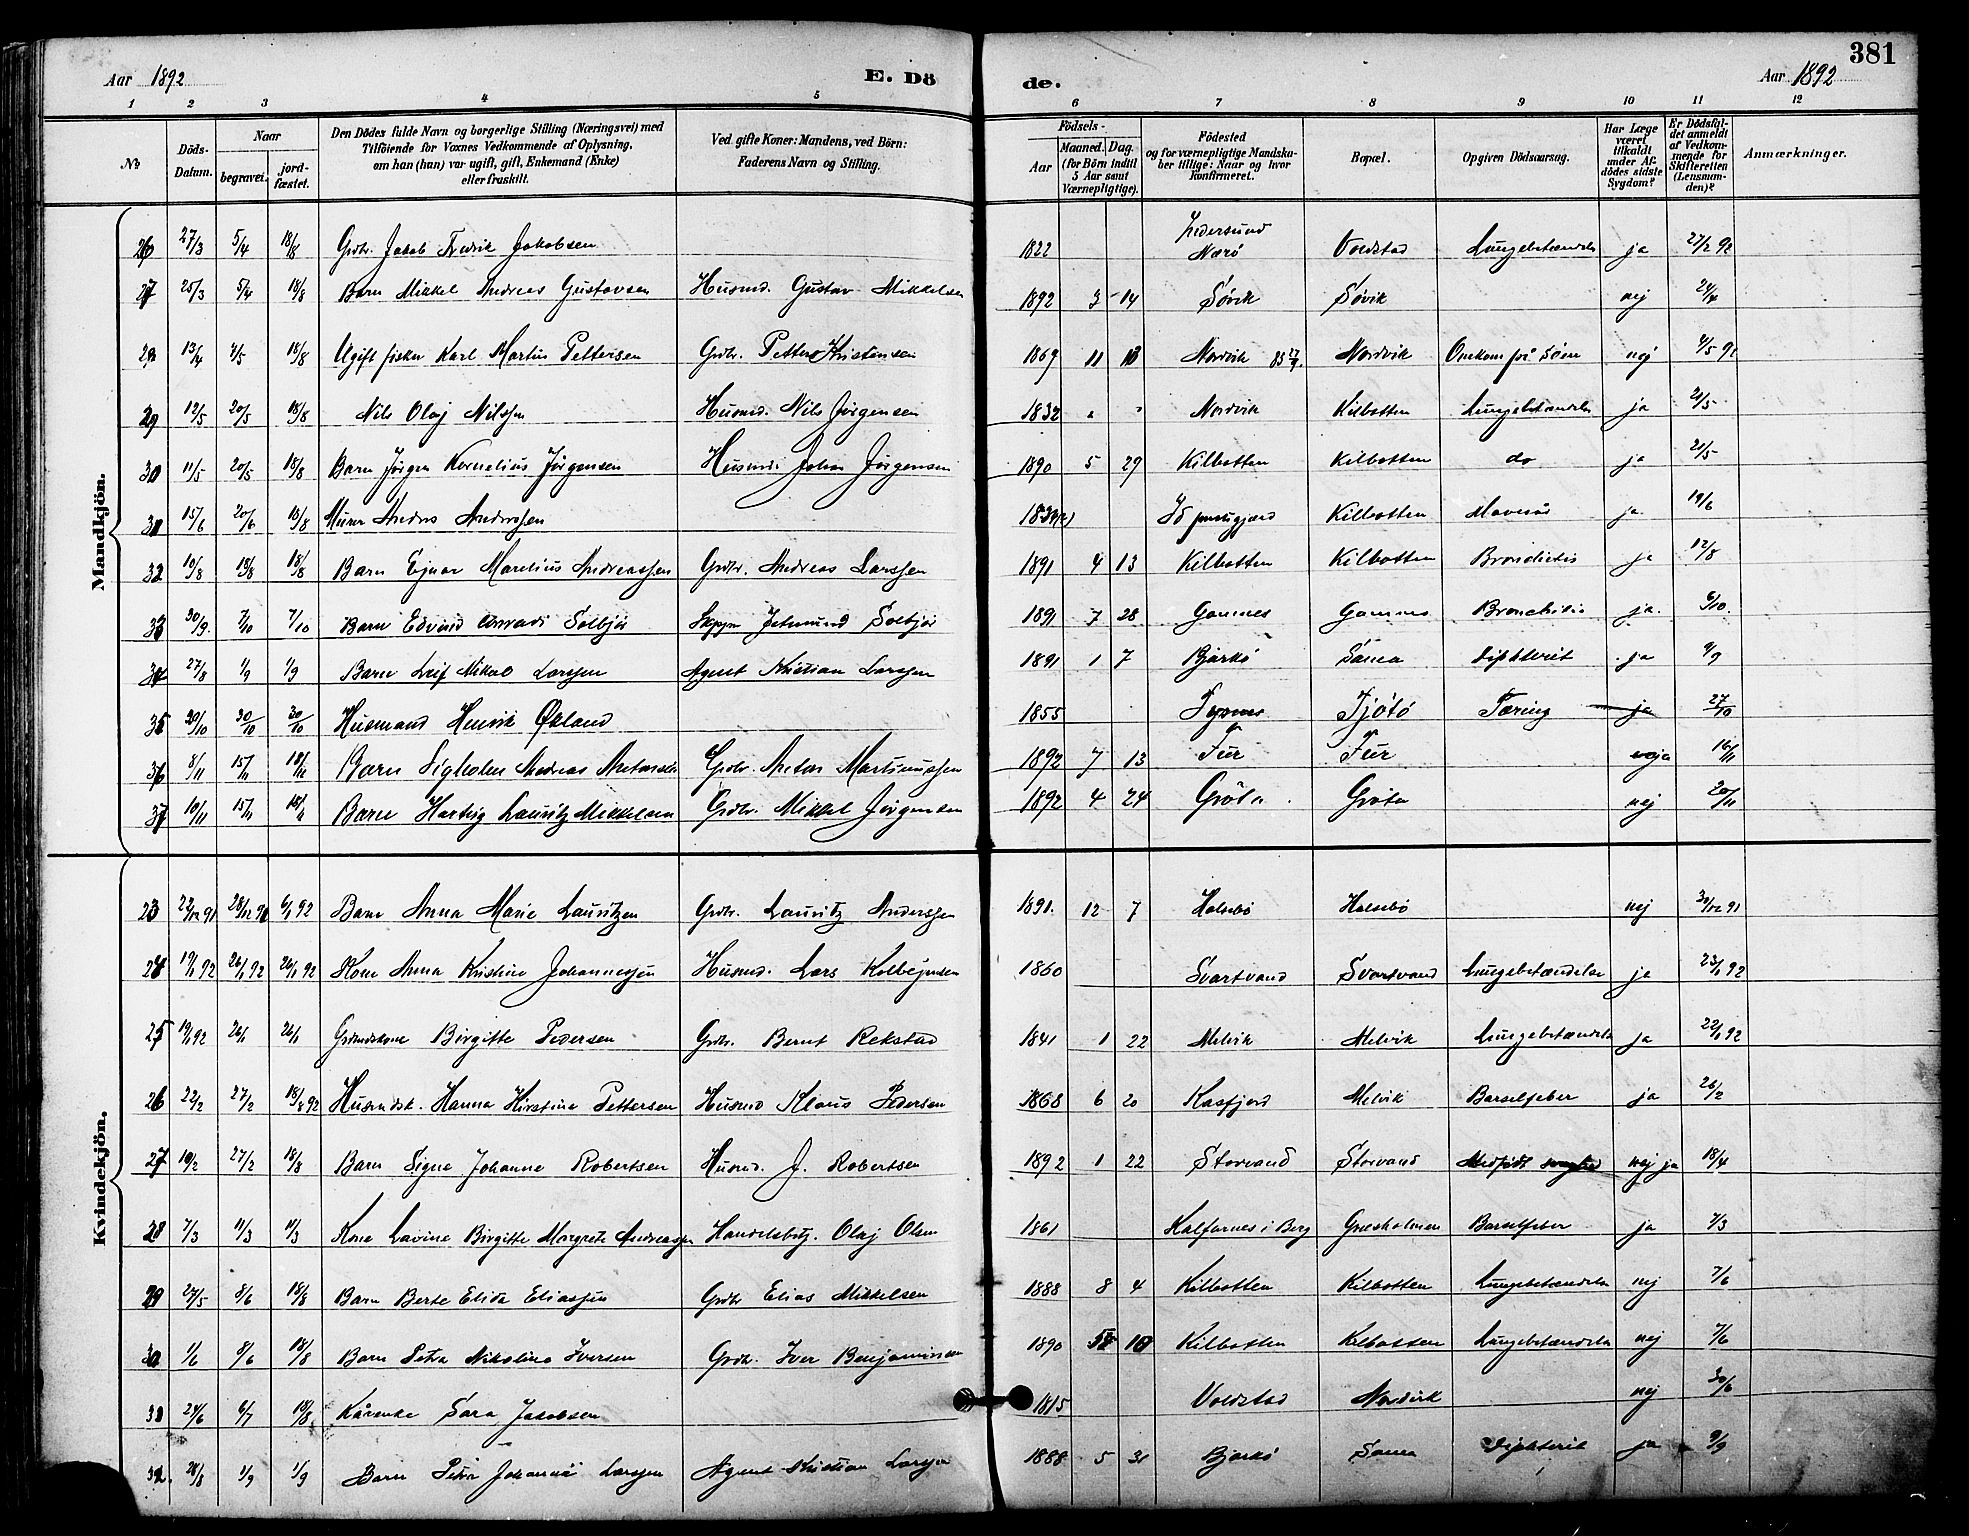 381
Aar 1892
E. Dö
de.
Aar 1892
1 2 3 4 5 6 7 8 9 10 11 12
No
Döds-Datum.
Naar
begravet.
jord-fæstet.
Den Dödes fulde Navn og borgerlige Stilling (Næringsvei) med
Tilföiende for Voxnes Vedkommende af Oplysning,
om han (hun) var ugift, gift, Enkemand (Enke)
eller fraskilt.
Ved gifte Koner: Mandens, ved Börn:
Faderens Navn og Stilling.
Födsels-
Aar
Maaned. Dag.
(for Börn indtil
5 Aar samt
Værnepligtige).
Födested
og for værnepligtige Mandska-
ber tillige: Naar og hvor
Konfirmeret.
Bopæl.
Opgiven Dödsaarsag.
Har Læge
været
tilkaldt
under Af-
dödes sidste
Sygdom?
Er Dödsfal-
det anmeldt
af Vedkom-
mende for
Skifteretten
(Lensman-
den)?
Anmærkninger.
Mandkjön.
26 27/3 5/4 18/8 Grdbr. Jakob Fredrik Jakobsen 1822 Nærö Voldstad Lungebetændelse ja 27/2 92
27 25/3 5/4 18/8 Barn Mikkel Andreas Gustavsen Husmd. Gustav Mikkelsen 1892 3 14 Sövik Sövik nej 24/4
28 13/4 4/5 18/8 Ugift fisker Karl Martin Pettersen Grdbr. Petter Kristensen 1869 11 Nordvik Nordvik Omkom på Söen nej 4/5 92
29 12/5 20/5 18/8 Nils Olaj Nilssen Husmd. Nils Jörgensen 1832 Nordvik Kilbotten Lungebetændelse ja 21/5
30 11/5 20/5 18/8 Barn Jörgen Kornelius Jörgensen Husmd. Johan Jörgensen 1890 5 29 Kilbotten Kilbotten do ja 21/5
31 15/6 20/6 18/8 Murer Andres Anderssen Kilbotten Mavesår ja 19/6
32 10/8 18/8 18/8 Barn Ejnar Marelius Andreassen Grdbr. Andreas Larssen 1891 4 13 Kilbotten Kilbotten ja 12/8
33 30/9 7/10 7/10 Barn Edvind Conradi Solbjör Skipper Jetmund Solbjör 1891 7 28 Gamnes Gamnes Bronchitis ja 6/10
34 27/8 1/9 1/9 Barn Leif Mikal Larssen Agent Kristian Larssen 1891 1 7 Bjarkö Sama Diphterit ja 9/9
35 20/10 30/10 30/10 Husmand Henrik Økland 1855 Tysnes Tjötö Tæring ja 27/10
36 8/11 15/11 18/11 Barn Sigholm Andreas Antonsen Grdbr. Anton Martinussen 1892 7 13 Fur Fur ja 16/11
37 10/11 15/11 18/11 Barn Hartvig Lauritz Mikkelsen Grdbr. Mikkel Jörgensen 1892 4 24 Gröta Gröta nej 20/11
Kvindekjön.
23 22/12 91 28/12 91 6/1 92 Barn Anna Marie Lauritzen Grdbr. Lauritz Anderssen 1891. 12 7 Halsebö Halsebö nej 30/12 91
24 19/1 92 26/1 92 26/1 92 Kone Anna Kristine Johannessen Husmd. Lars Kolbejnsen 1860 Svartvand Svartvand Lungebetændelse ja 23/1 92
25 19/1 92 26/1 26/1 Grdmdskone Birgitte Pedersen Grdbr. Bernt Rekstad 1841 1 22 Melvik Melvik Lungebetændelse ja 22/1 92
26 22/2 27/2 18/8 92 Husmdsk. Hanna Kirstine Pettersen Husmd Klaus Pedersen 1868 6 20 Kasfjord Melvik Barselfeber ja 26/2
27 19/2 27/2 18/8 Barn Signe Johanne Robertsen Husmd. J. Robertsen 1892 1 22 Storvand Storvand Medfödt svaghed nej ja 18/4
28 7/3 11/3 11/3 Kone Lavine Birgitte Margrete Andreassen Handelsbetj. Olaj Olsen 1861 Kalfarnes i Berg Gresholmen Barselfeber ja 7/3
29 27/5 8/6 18/8 Barn Berte Elida Eliassen Grdbr Elias Mikkelsen 1888 8 4 Kilbotten Kilbotten Lungebetændelse nej 7/6
30 1/6 8/6 18/8 Barn Petra Nikoline Iversen Grdbr. Iver Benjaminsen 1890 Kilbotten Kilbotten Lungebetændelse nej 7/6
31 24/6 6/7 18/8 Kårenke Sara Jakobsen 1815 Voldstad Nordvik nej 30/6
32. 28/8 1/9 1/9 Barn Petra Johanna Larssen Agent Kristian Larssen 1888 5 31 Bjarkö Sama Diphterit ja 9/9